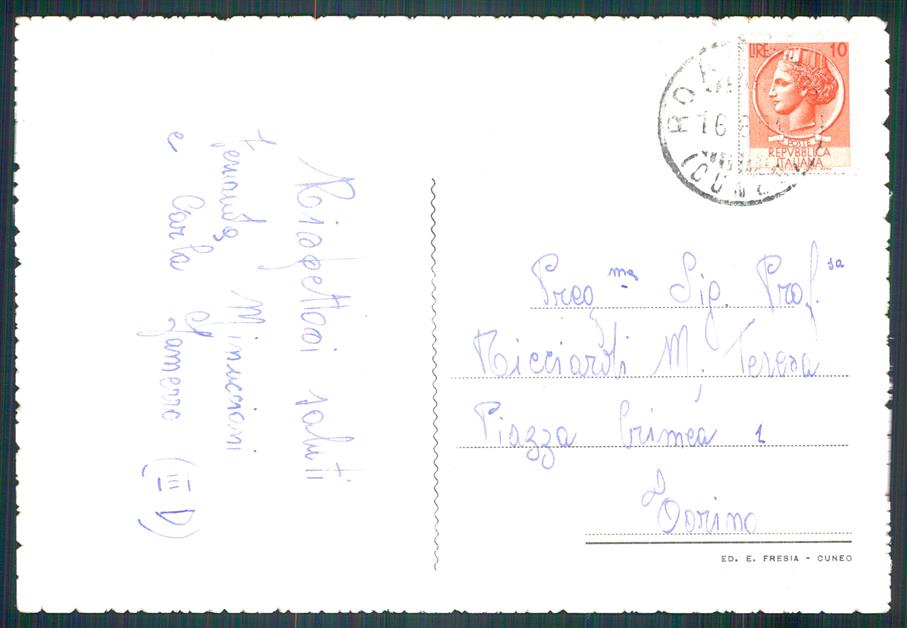 Rispettosi saluti
Fernanda Minuccioni
e Carla (III D)
LIRE 10
POSTE
REPVBBLICA
ITALIANA
16
(CUNEO)
Preg.ma Sig. Prof.sa
Ricciardi M. Teresa
Piazza Crimea 1
Torino
ED. E. FRESIA - CUNEO